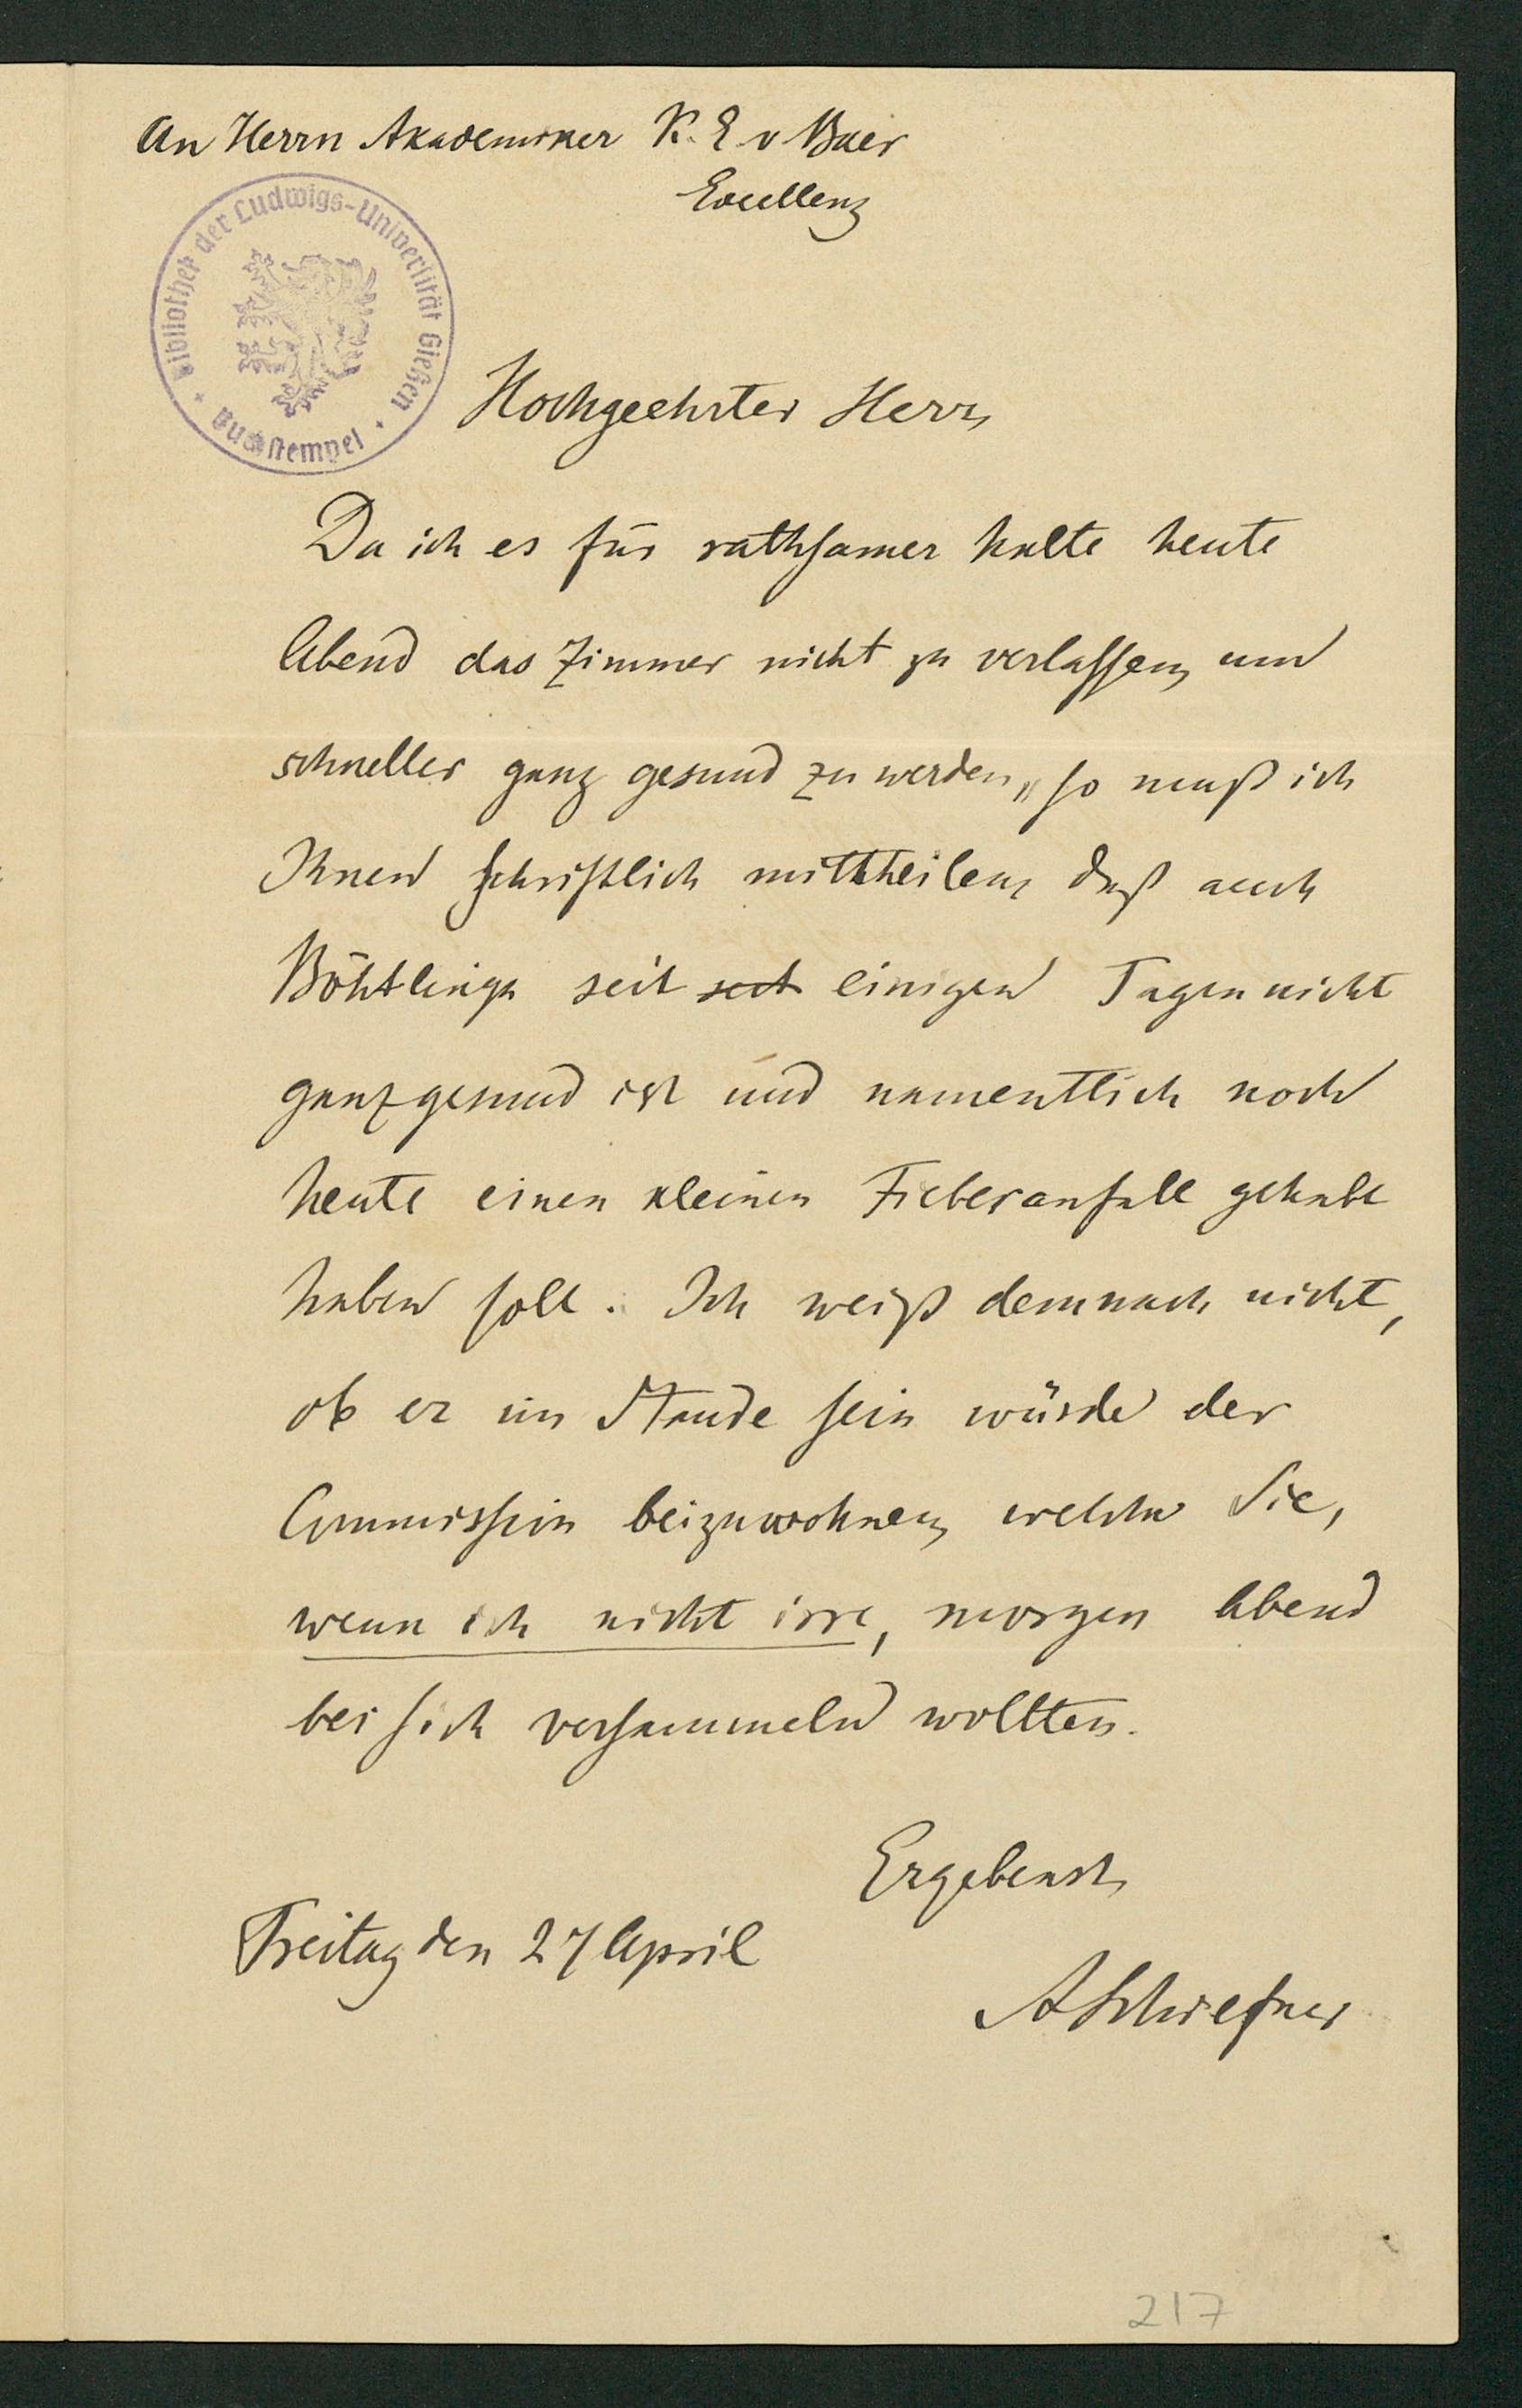 An Herrn Akademiker K. E v Baer
Excellenz
Bibliothek der Ludwigs-Universität Gießen
Buchstempel
Hochgeehrter Herr,
Da ich es für rathsamer halte heute
Abend das Zimmer nicht zu verlassen, um
schneller ganz gesund zu werden, so muß ich
Ihnen schriftlich mittheilen, daß auch
Böhtlingk seit seit einigen Tagen nicht
ganz gesund ist und namentlich noch
heute einen kleinen Fieberanfall gehabt
haben soll. Ich weiß demnach nicht,
ob er im Stande sein würde der
Commission beizuwohnen, welche Sie,
wenn ich nicht irre, morgen Abend
bei sich versammeln wollten.
Ergebenst
Freitag den 27 April
ASchiefner
217